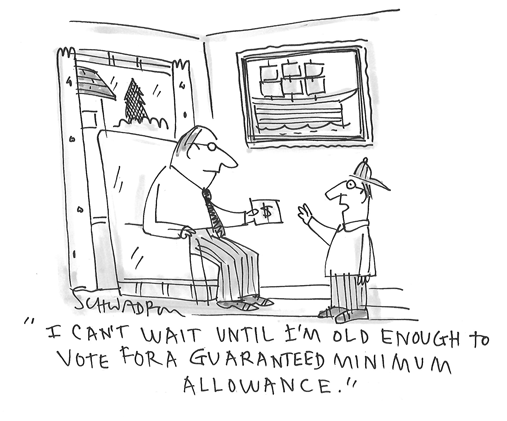 $
SCHWADRON
" I CAN'T WAIT UNTIL I'M OLD ENOUGH TO
VOTE FOR A GUARANTEED MINIMUM
ALLOWANCE."